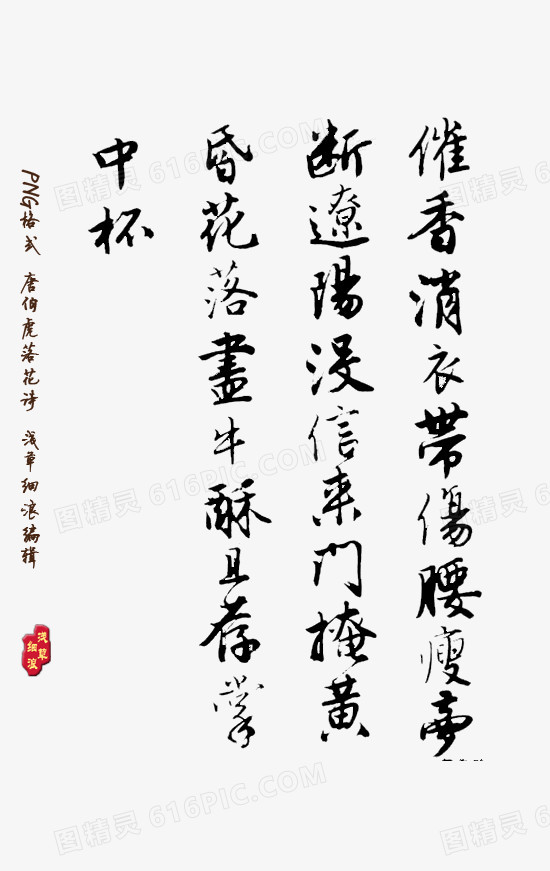 催香消衣帶傷腰瘦夢
断遼陽没信来門掩黄
昏花落盡牛酥且荐掌
中杯
PNG格式 唐伯虎落花诗 浅草细浪编辑
浅草
细浪
图精灵 616PIC.COM